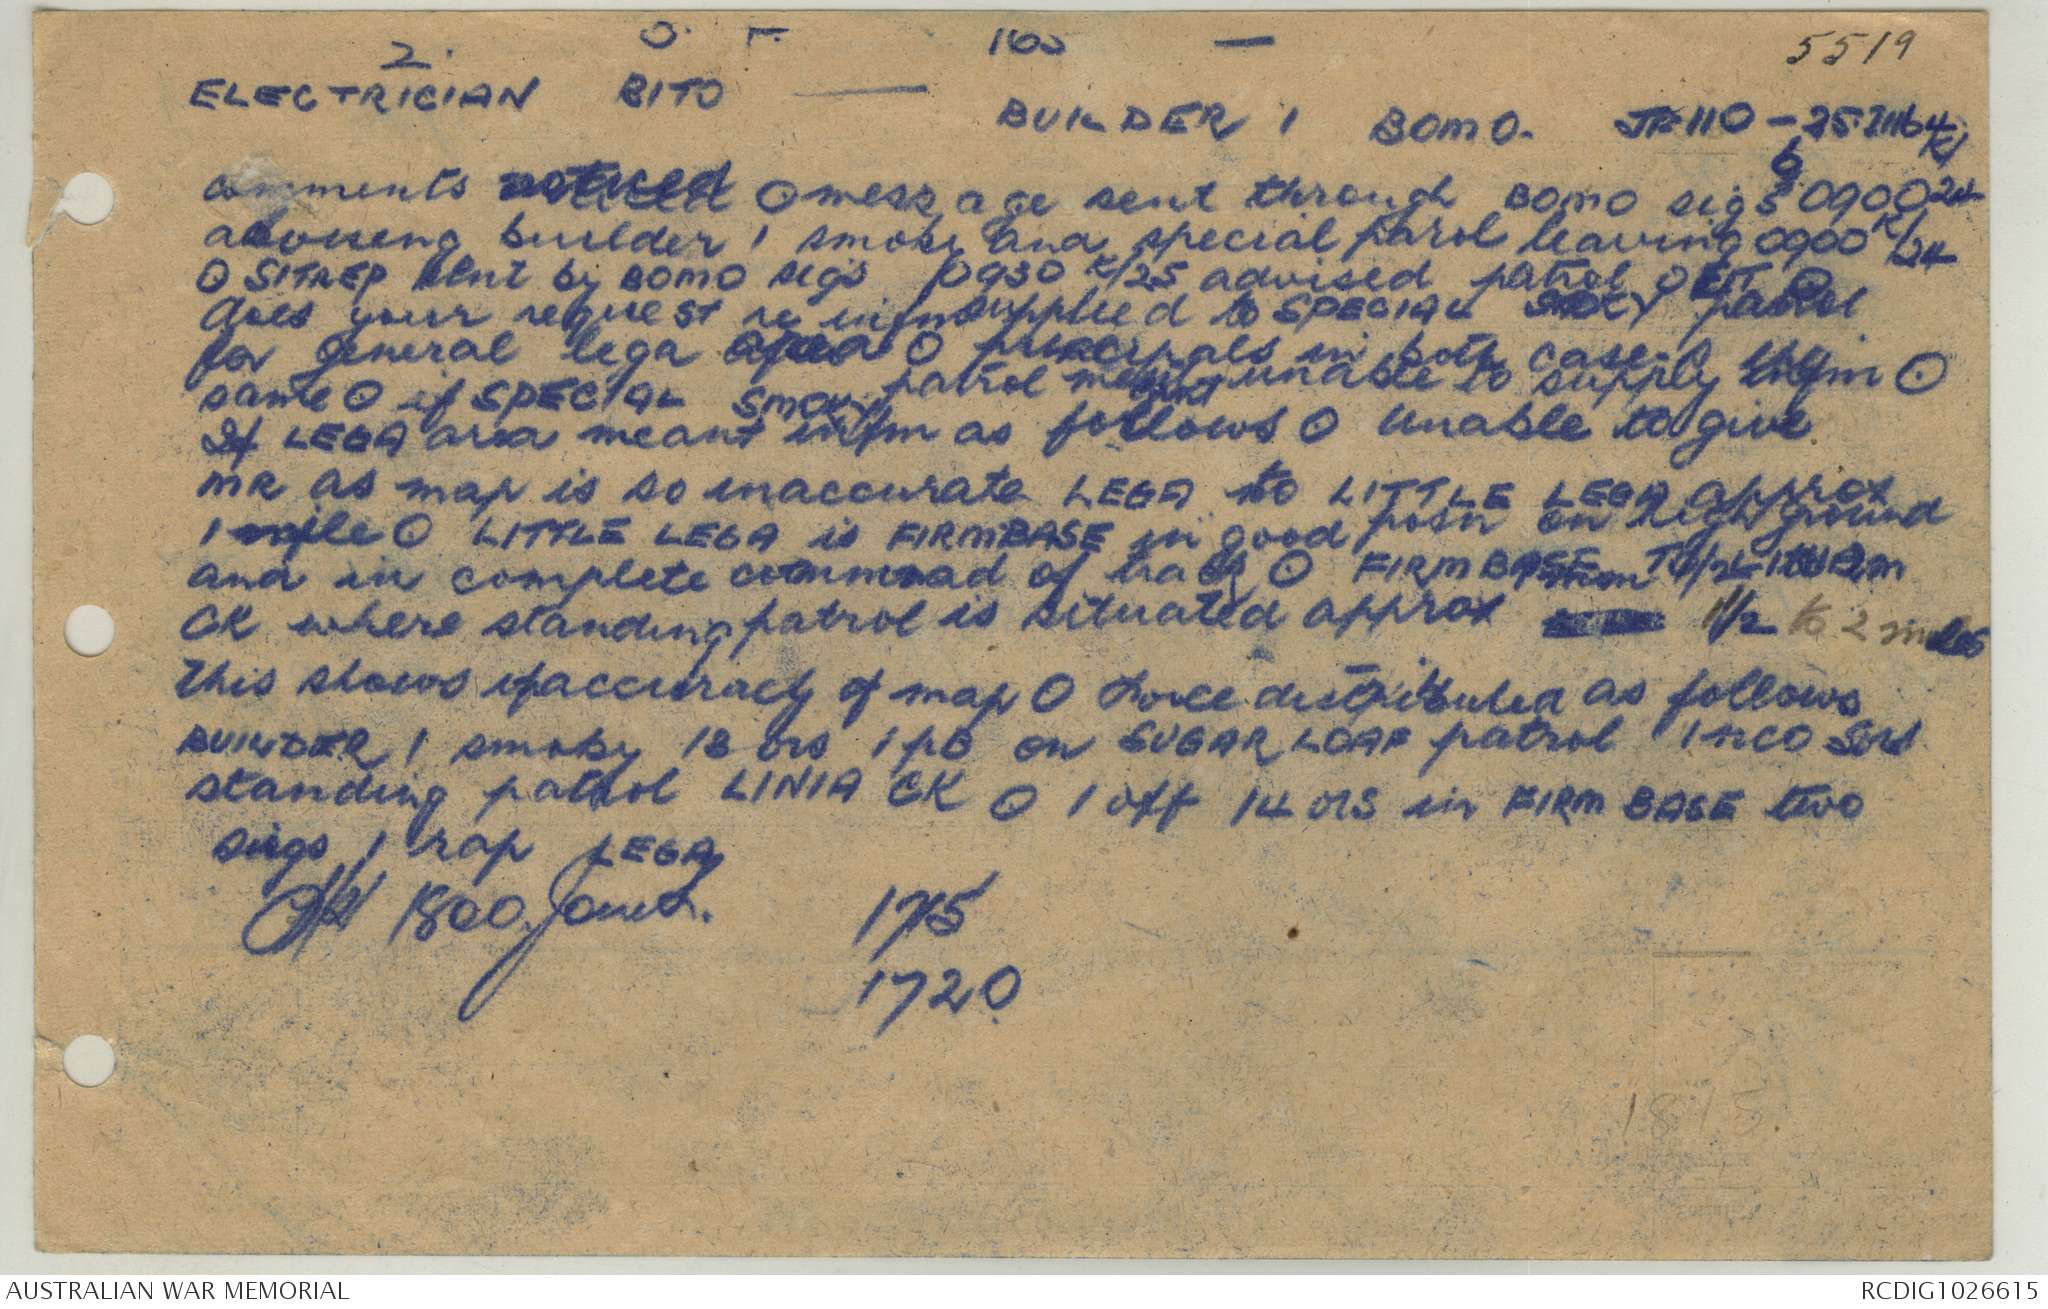 2. O. F. 165 — 5519
ELECTRICIAN BITO — BUILDER 1 BOMO. 110 -
comments noticed O message sent through BOMO sigs 0900 K/24
advising builder 1 smoky and special patrol leaving 0900 K/24
O SITREP sent by BOMO sigs 0930 K/25 advised patrol O
does your request re infm supplied to SPECIAL patrol
for general lega area O principals in both case O
same O if SPECIAL patrol meant unable to supply infm O
If LEGA area meant infm as follows O Unable to give
MR as map is so inaccurate LEGA to LITTLE LEGA approx
1 mile O LITTLE LEGA is FIRMBASE in good posn on high ground
and in complete command of track O FIRMBASE
CK where standing patrol is situated approx 1 1/2 to 2 miles
This shows inaccuracy of map O Force distributed as follows
BUILDER 1 smoky 18 ors 1 pB on SUGAR LOAF patrol 1 NCO
standing patrol LINIA CK O 1 off 14 ors in FIRM BASE two
sigs 1 rap LEGA
1800 1715
1720
1815
AUSTRALIAN WAR MEMORIAL RCDIG1026615